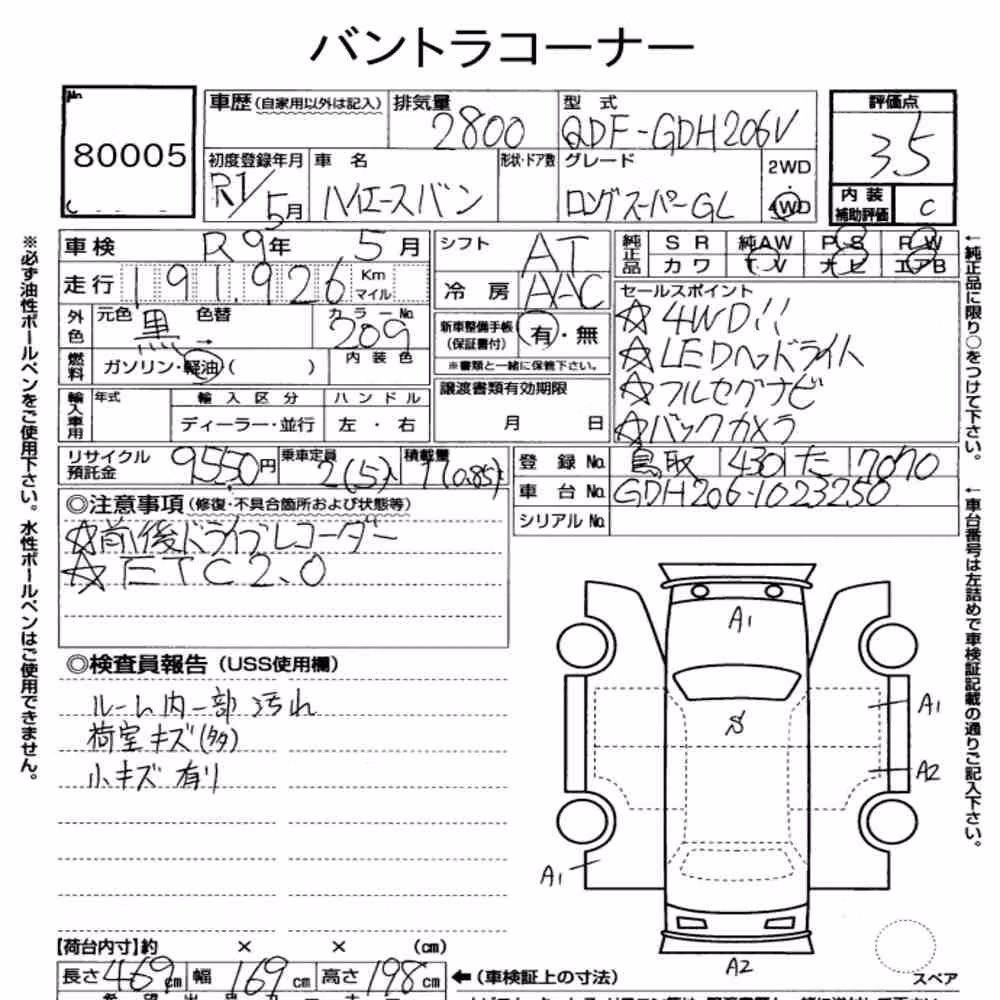 バントラコーナー
No.
80005
車歴(自家用以外は記入)
排気量
2800
型 式
QDF-GDH206V
評価点
3.5
初度登録年月
R1/5月
車 名
ハイエースバン
形状・ドア数
グレード
ロングスーパーGL
2WD
4WD
内 装
補助評価
C
車 検
R 9年 5月
シフト
AT
純正品
S R 純AW P S P W
カワ T V ナビ エアB
走 行
191,926
Km
マイル
冷 房
A/C
セールスポイント
☆4WD!!
☆LEDヘッドライト
☆フルセグナビ
☆バックカメラ
外色
元色
黒
色替
→
カラーNo.
209
新車整備手帳
(保証書付)
有・無
※書類と一緒に保管下さい。
燃料
ガソリン・軽油( )
内 装 色
譲渡書類有効期限
月 日
輸入車用
年式
輸 入 区 分
ハンドル
ディーラー・並行
左 ・ 右
リサイクル
預託金
9550円
乗車定員
2(5)人
積載量
1(0.85)
登 録 No.
鳥取 430 た 7070
車 台 No.
GDH206-1023250
シリアルNo.
◎注意事項(修復・不具合箇所および状態等)
☆前後ドライブレコーダー
☆ETC2.0
◎検査員報告(USS使用欄)
ルーム内一部汚れ
荷室キズ(多)
小キズ有り
A1
S
A1
A2
A1
A2
スペア
【荷台内寸】約 × × (cm)
長さ469cm 幅169cm 高さ198cm
←(車検証上の寸法)
※必ず油性ボールペンをご使用下さい。水性ボールペンはご使用できません。
←純正品に限り○をつけて下さい。
←車台番号は左詰めで車検証記載の通りご記入下さい。